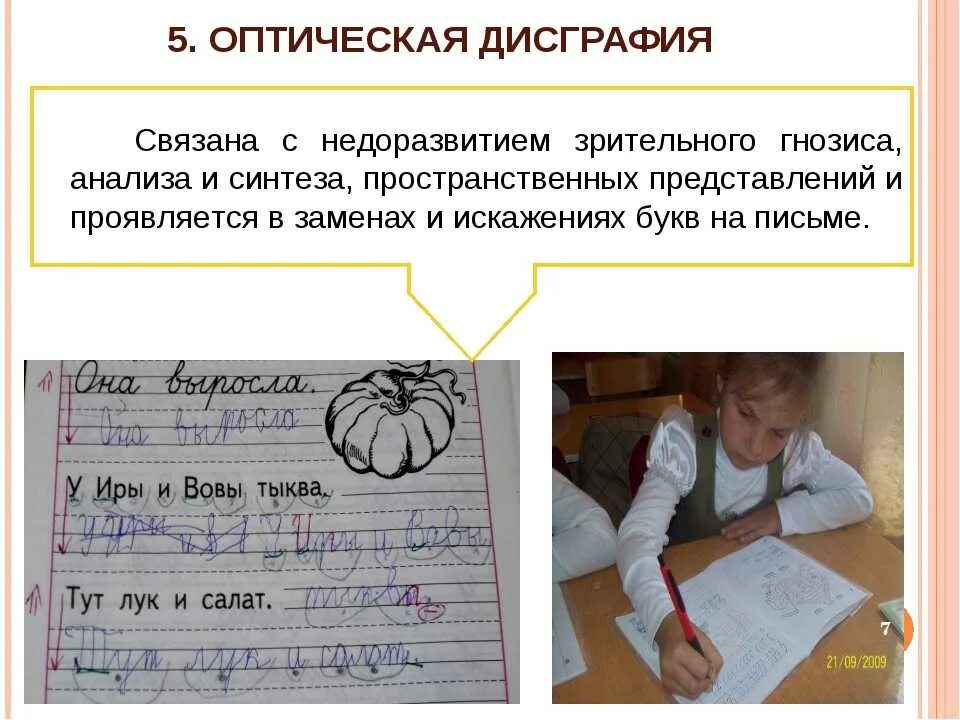 5. ОПТИЧЕСКАЯ ДИСГРАФИЯ
Связана с недоразвитием зрительного гнозиса,
анализа и синтеза, пространственных представлений и
проявляется в заменах и искажениях букв на письме.
Она выросла.
Она выросла
У Иры и Вовы тыква.
У Иры и Вовы
Тут лук и салат. тыква
Тут лук и салат.
7
21/09/2009